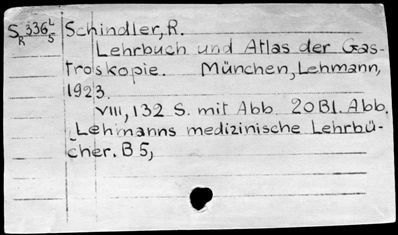 S 336 L
R 5
Schindler, R.
Lehrbuch und Atlas der Gas-
troskopie. München, Lehmann,
1923.
VIII, 132 S. mit Abb. 20 Bl. Abb.
„Lehmanns medizinische Lehrbü-
cher. B 5,